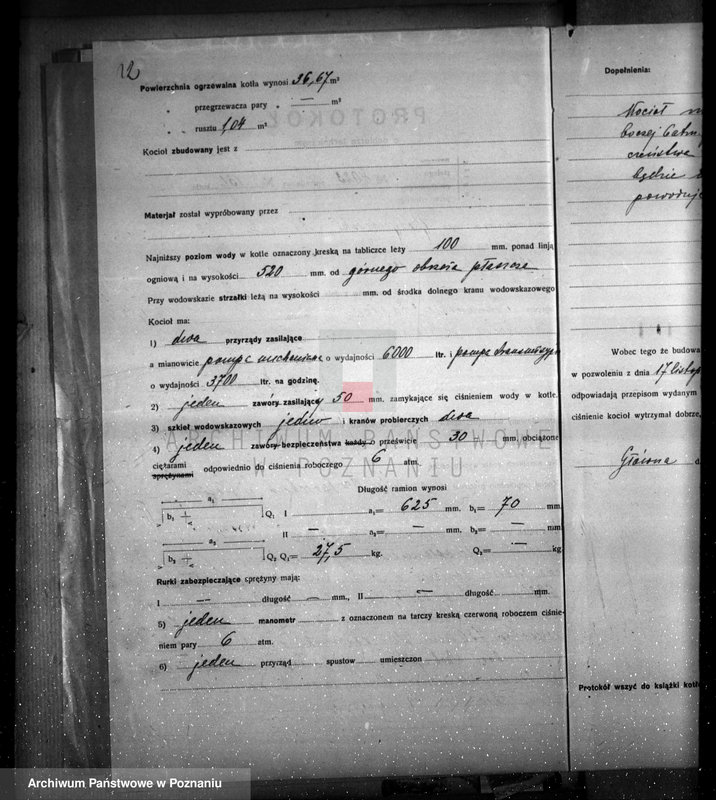 12
Powierzchnia ogrzewalna kotła wynosi 36,67 m²
„ przegrzewacza pary „ — m²
„ rusztu 1,04 m²
Kocioł zbudowany jest z
Materjał został wypróbowany przez
Najniższy poziom wody w kotle oznaczony kreską na tabliczce leży 100 mm. ponad linją
ogniową i na wysokości 520 mm. od górnego obrzeża płaszcza
Przy wodowskazie strzałki leżą na wysokości mm. od środka dolnego kranu wodowskazowego
Kocioł ma:
1) dwa przyrządy zasilające
a mianowicie pompę o wydajności 6000 ltr. i pompę
o wydajności 3700 ltr. na godzinę.
2) jeden zawory zasilający 50 mm. zamykające się ciśnieniem wody w kotle.
3) szkieł wodowskazowych jedno i kranów probierczych dwa
4) jeden zawory bezpieczeństwa każdy o prześwicie 30 mm. obciążone
ciężarami
sprężynami odpowiednio do ciśnienia roboczego 6 atm.
Długość ramion wynosi
a₁ b₁ Q₁ I a₁= 625 mm. b₁= 70 mm.
II — a₂= — mm. b₂= — mm.
a₂ b₂ Q₂ Q₁= 27,5 kg. Q₂= — kg.
Rurki zabezpieczające sprężyny mają:
I — długość — mm., II — długość mm.
5) jeden manometr z oznaczonem na tarczy kreską czerwoną roboczem ciśnie-
niem pary 6 atm.
6) jeden przyrząd spustow umieszczon
Dopełnienia:
Kocioł
będzie
Wobec tego że budowa
w pozwoleniu z dnia 17 listop
odpowiadają przepisom wydanym
ciśnienie kocioł wytrzymał dobrze,
Główna d
Protokół wszyć do książki kotł
ARCHIWUM PAŃSTWOWE
W POZNANIU
Archiwum Państwowe w Poznaniu